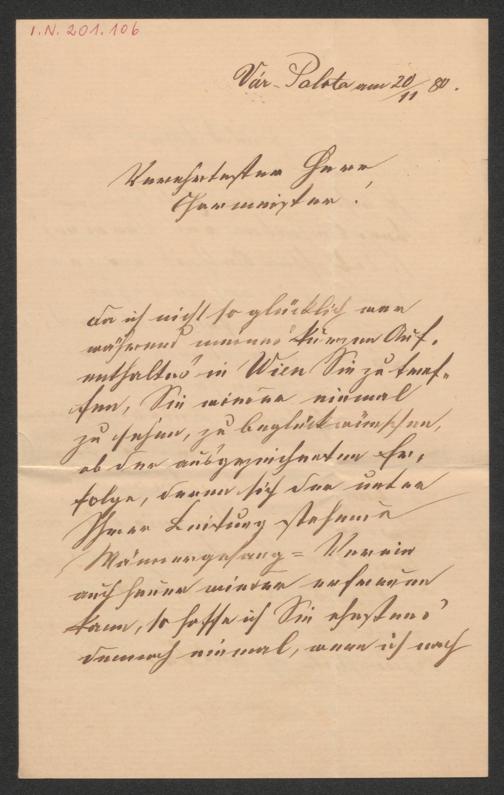 I.N. 201.106
Vár-Palota am 20/11 80.
Verehrtester Herr
Chormeister!
Da ich nicht so glücklich war
während meines kurzen Auf-
enthaltes in Wien Sie zu tref-
fen, Sie wieder einmal
zu sehen, zu beglückwünschen,
ob der ausgezeichneten Er-
folge, deren sich der unter
Ihrer Leitung stehende
Männergesang=Verein
auch heuer wieder erfreuen
kann, so hoffe ich Sie ehestens
dennoch einmal, wenn ich nach